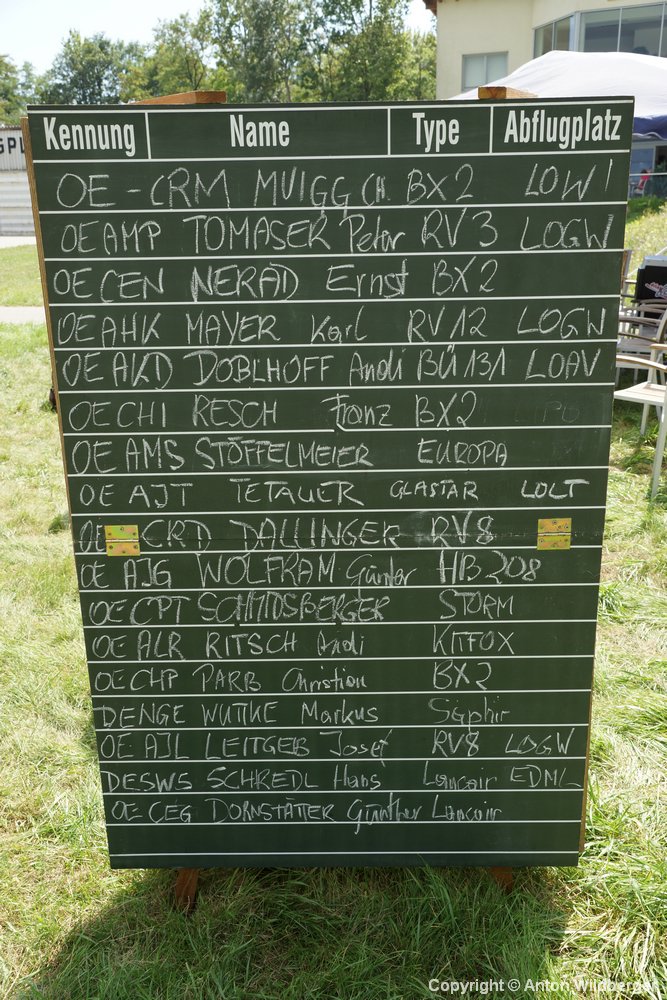 GPL
Kennung Name Type Abflugplatz
OE-CRM MUIGG CH. BX2 LOWI
OE AMP TOMASER Peter RV3 LOGW
OE CEN NERAD Ernst BX2
OE AHK MAYER Karl RV12 LOGW
OE AKD DOBLHOFF Andi BÜ131 LOAV
OE CHI RESCH Franz BX2
OE AMS STÖFFELMEIER EUROPA
OE AJT TETAUER GLASTAR LOLT
OE-CRD DALLINGER RV8
OE AJG WOLFRAM Günter HB208
OE CPT SCHMIDSBERGER STORM
OE ALR RITSCH Andi KITFOX
OE CHP PARB Christian BX2
DENGE WUTKE Markus Saphir
OE AJL LEITGEB Josef RV8 LOGW
DESWS SCHREDL Hans Lancair EDML
OE CEG DORNSTÄTTER Günther Lancair
Copyright © Anton Wildberger